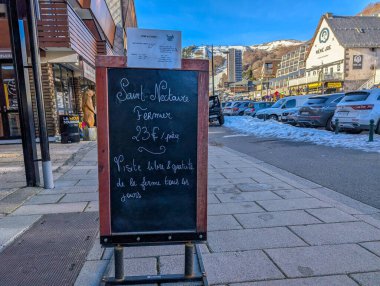 Saint-Nectaire
Fermier
23€/pièce
Visite libre & gratuite
de la ferme tous les
jours